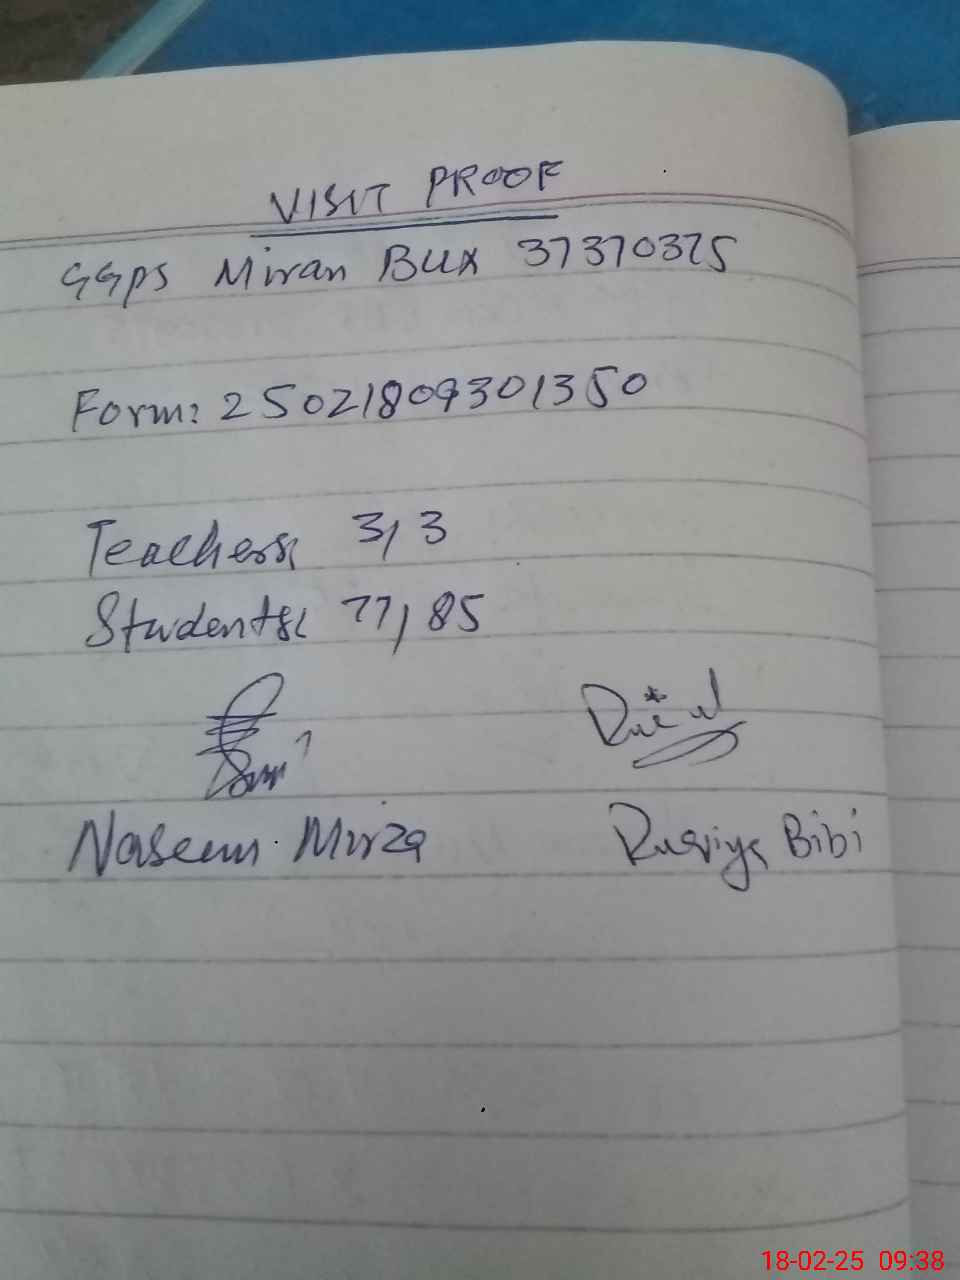 VISIT PROOF
GGPS Miran Bux 37370375
Form: 25021809301350
Teachers: 3/3
Students: 77/85
Naseem Mirza
Bibi
18-02-25 09:38